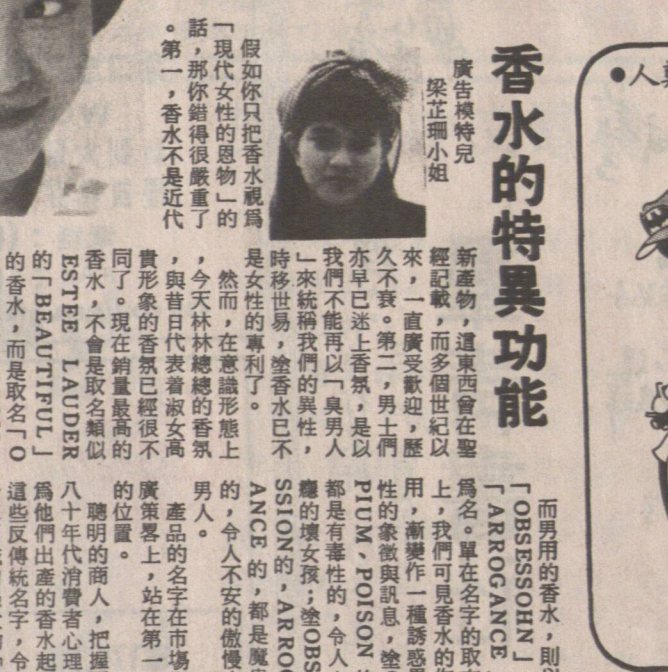 香水的特異功能
廣告模特兒
梁芷珊小姐
假如你只把香水視爲
「現代女性的恩物」的
話,那你錯得很嚴重了
。第一,香水不是近代
新產物,這東西曾在聖
經記載,而多個世紀以
來,一直廣受歡迎,歷
久不衰。第二,男士們
亦早已迷上香氛,是以
我們不能再以「臭男人
」來統稱我們的異性,
時移世易,塗香水已不
是女性的專利了。
然而,在意識形態上
,今天林林總總的香氛
,與昔日代表着淑女高
貴形象的香氛已經很不
同了。現在銷量最高的
香水,不會是取名類似
ESTEE LAUDER
的「BEAUTIFUL」
的香水,而是取名「O
而男用的香水,則以
「OBSESSOHN」
「ARROGANCE
爲名。單在名字的取
上,我們可見香水的作
用,漸變作一種誘惑
性的象徵與訊息,塗
PIUM,POISON
都是有毒性的,令人
癮的壞女孩;塗OBS
SSION的,ARRO
ANCE 的,都是魔
的,令人不安的傲慢
男人。
產品的名字在市場
廣策畧上,站在第一
的位置。
聰明的商人,把握
八十年代消費者心理
爲他們出產的香水起
這些反傳統名字,令
●人